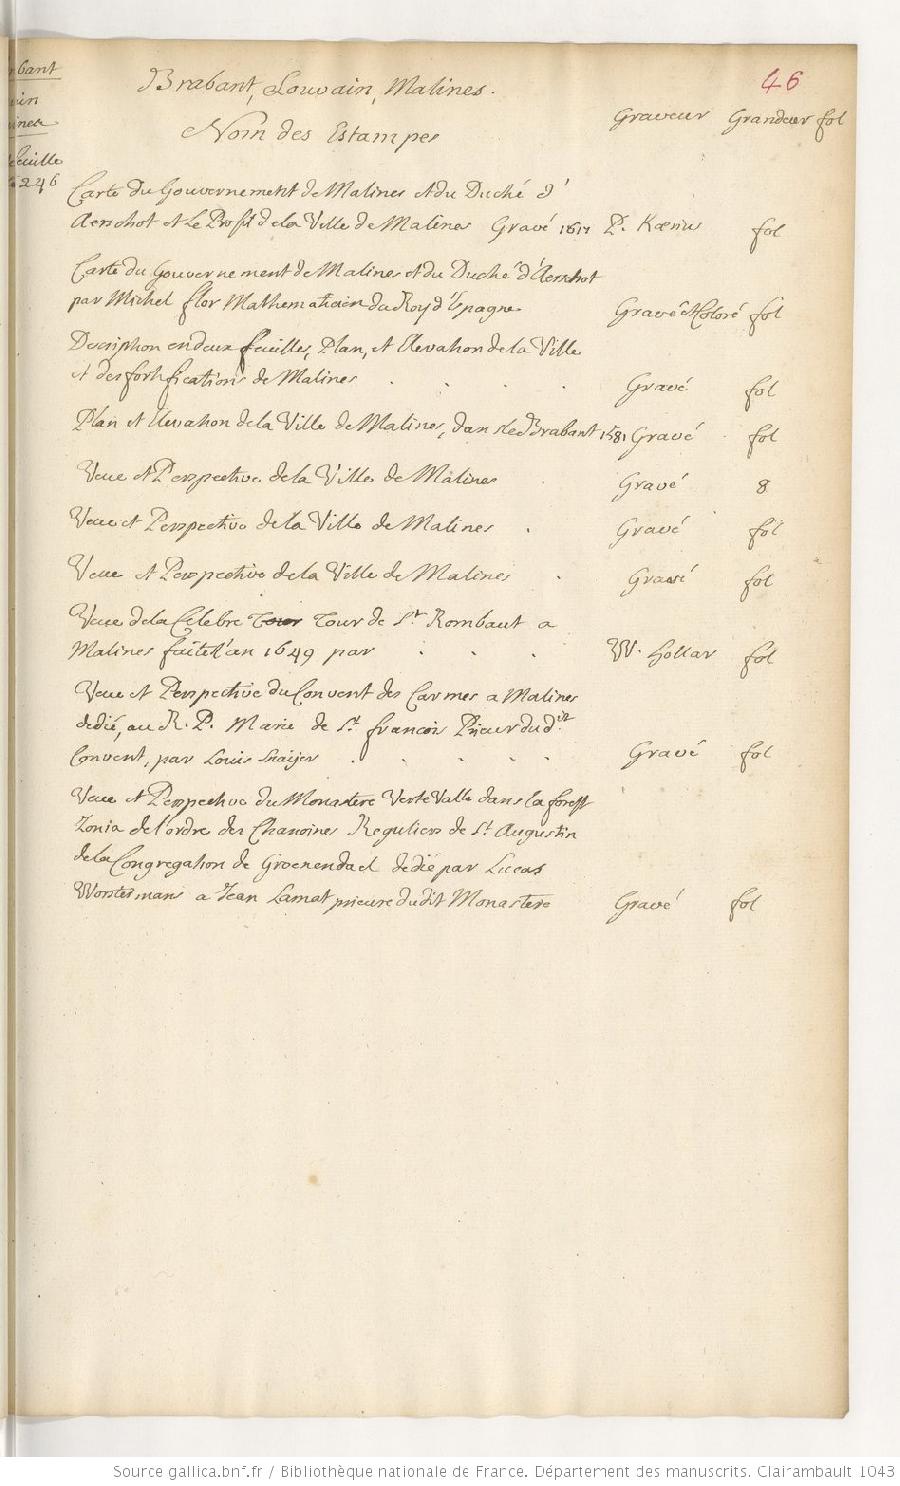 46
Brabant, Louvain, Malines.
Nom des Estampes
Graveur Grandeur fol
Carte du Gouvernement de Malines et du Duché d'
Aerschot et Le Profil de la Ville de Malines Gravé 1617 P. Kærius fol
Carte du Gouvernement de Malines et du Duché d'Aerschot
par Michel flor Mathematicien du Roy d'Espagne Gravé et Coloré fol
Description en deux feuilles, Plan, et Elevation de la Ville
et des fortifications de Malines . . . . Gravé fol
Plan et Elevation de la Ville de Malines, dans le Brabant 1581 Gravé fol
Veue et Perspective de la Ville de Malines . Gravé 8
Veue et Perspective de la Ville de Malines . Gravé fol
Veue et Perspective de la Ville de Malines . Gravé fol
Veue de la Celebre Tour Tour de St. Rombaut a
Malines faite l'an 1649 par . . . W. Hollar fol
Veue et Perspective du Convent des Carmes a Malines
dedié, au R. P. Marie de St. francois Prieur dud.it
Convent, par Louis Snaijers . . . . . Gravé fol
Veue et Perspective du Monastere Verte Valle dans la forest
Zonia de l'ordre des Chanoines Reguliers de St. Augustin
de la Congregation de Groenendael dedié par Lucas
Worstermans a Jean Lamot prieure dudit Monastere Gravé fol
Source gallica.bnf.fr / Bibliothèque nationale de France. Département des manuscrits. Clairambault 1043